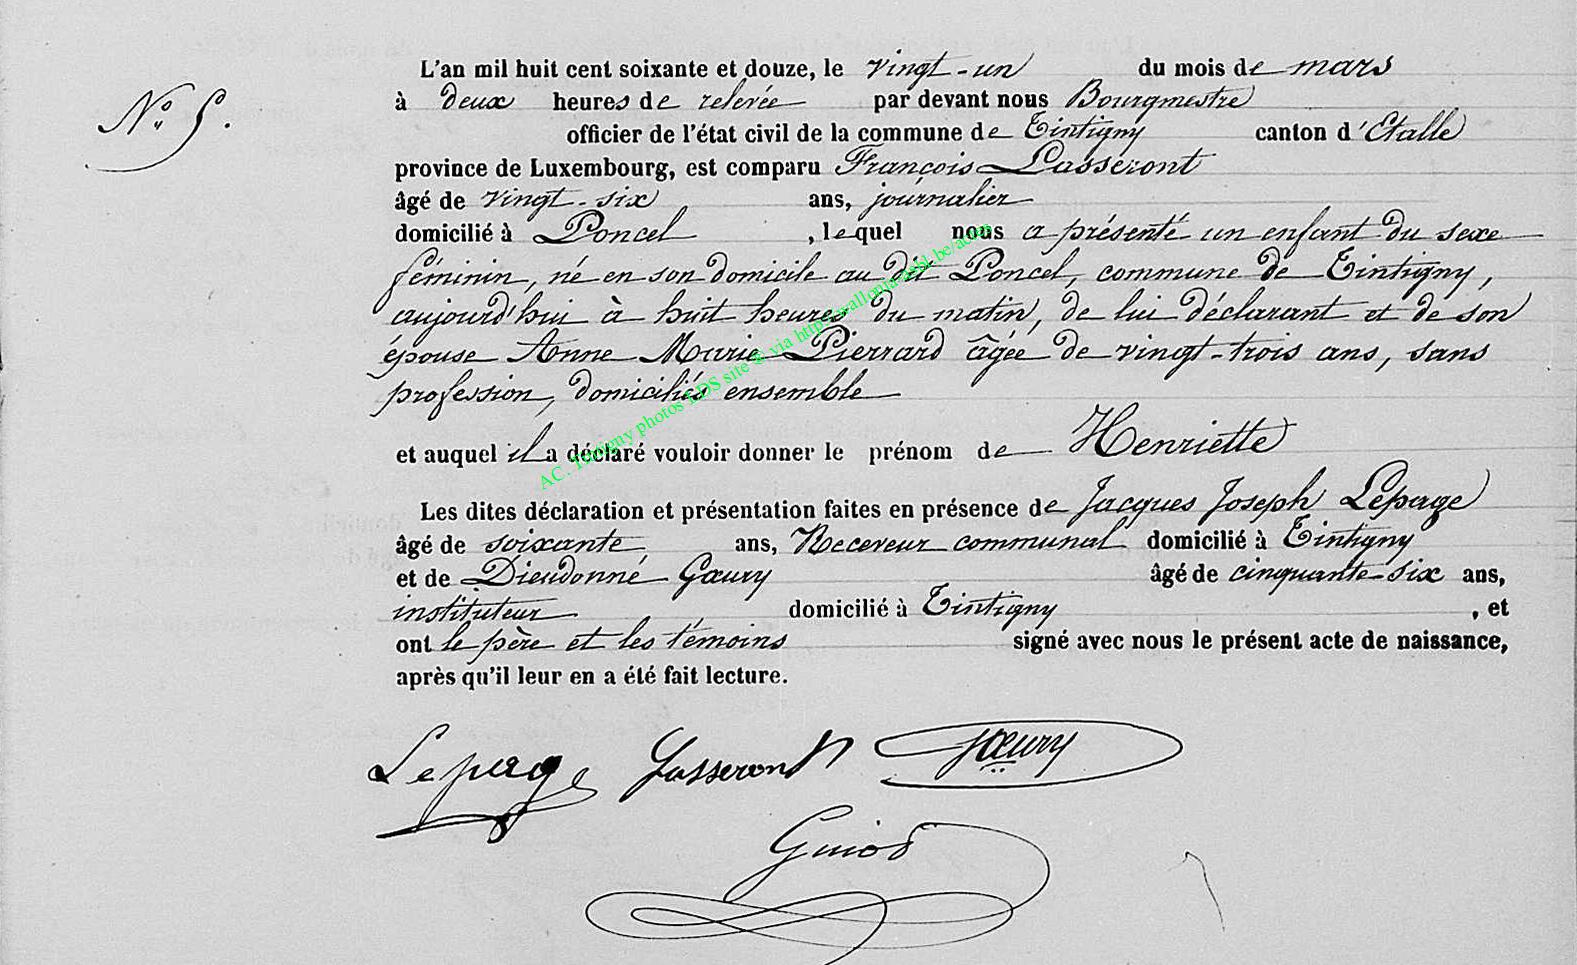 L'an mil huit cent soixante et douze, le vingt-un du mois de mars
à deux heures de relevée par devant nous Bourgmestre
officier de l'état civil de la commune de Tintigny canton d'Etalle
province de Luxembourg, est comparu François Lasseront
âgé de vingt-six ans, journalier
domicilié à Poncel , lequel nous a présenté un enfant du sexe
féminin, né en son domicile au dit Poncel, commune de Tintigny,
aujourd'hui à huit heures du matin, de lui déclarant et de son
épouse Anne Marie Pierrard âgée de vingt-trois ans, sans
profession, domiciliés ensemble
et auquel il a déclaré vouloir donner le prénom de Henriette
Les dites déclaration et présentation faites en présence de Jacques Joseph Lepage
âgé de soixante ans, Receveur communal domicilié à Tintigny
et de Dieudonné Gœury âgé de cinquante-six ans,
instituteur domicilié à Tintigny , et
ont le père et les témoins signé avec nous le présent acte de naissance,
après qu'il leur en a été fait lecture.
Lepage Lasseront Gœury
Guiod
N° 5.
AC. Tintigny photos LDS site © via